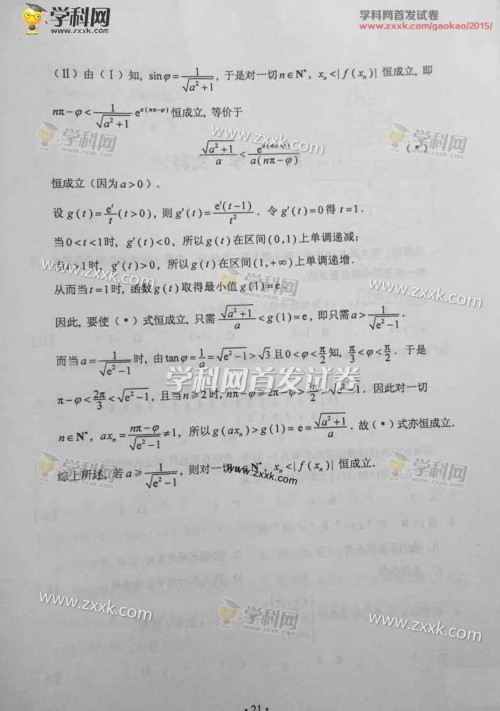 学科网
zxxk.com
学科网首发试卷
www.zxxk.com/gaokao/2015/
(Ⅱ)由(Ⅰ)知, sinφ=1/√(a²+1), 于是对一切 n∈N*, xₙ<|f(xₙ)| 恒成立, 即
nπ-φ<1/√(a²+1) e^(a(nπ-φ)) 恒成立, 等价于
√(a²+1)/a < e^(a(nπ-φ))/a(nπ-φ) (*)
恒成立(因为 a>0).
设 g(t)=eᵗ/t (t>0), 则 g′(t)=eᵗ(t-1)/t². 令 g′(t)=0 得 t=1.
当 0<t<1 时, g′(t)<0, 所以 g(t) 在区间 (0,1) 上单调递减;
当 t>1 时, g′(t)>0, 所以 g(t) 在区间 (1,+∞) 上单调递增.
从而当 t=1 时, 函数 g(t) 取得最小值 g(1)=e.
因此, 要使(*)式恒成立, 只需 √(a²+1)/a<g(1)=e, 即只需 a>1/√(e²-1).
而当 a=1/√(e²-1) 时, 由 tanφ=1/a=√(e²-1)>√3 且 0<φ<π/2 知, π/3<φ<π/2. 于是
π-φ<2π/3<√(e²-1), 且当 n≥2 时, nπ-φ≥2π-φ>3π/2>√(e²-1). 因此对一切
n∈N*, axₙ=(nπ-φ)/√(e²-1)≠1, 所以 g(axₙ)>g(1)=e=√(a²+1)/a. 故(*)式亦恒成立.
综上所述, 若 a≥1/√(e²-1), 则对一切 n∈N*, xₙ<|f(xₙ)| 恒成立.
学科网首发试卷
www.zxxk.com
·21·